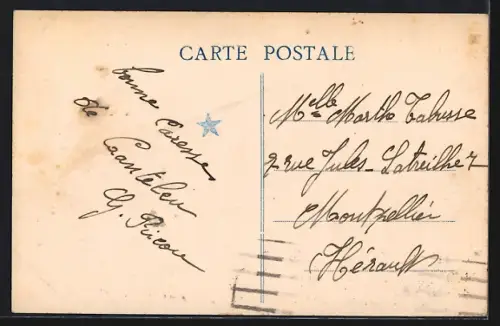 CARTE POSTALE
bonne Caresse
de
Canteleu
Melle Marthe
2 rue Jules-Latreilhe
Montpellier
Hérault